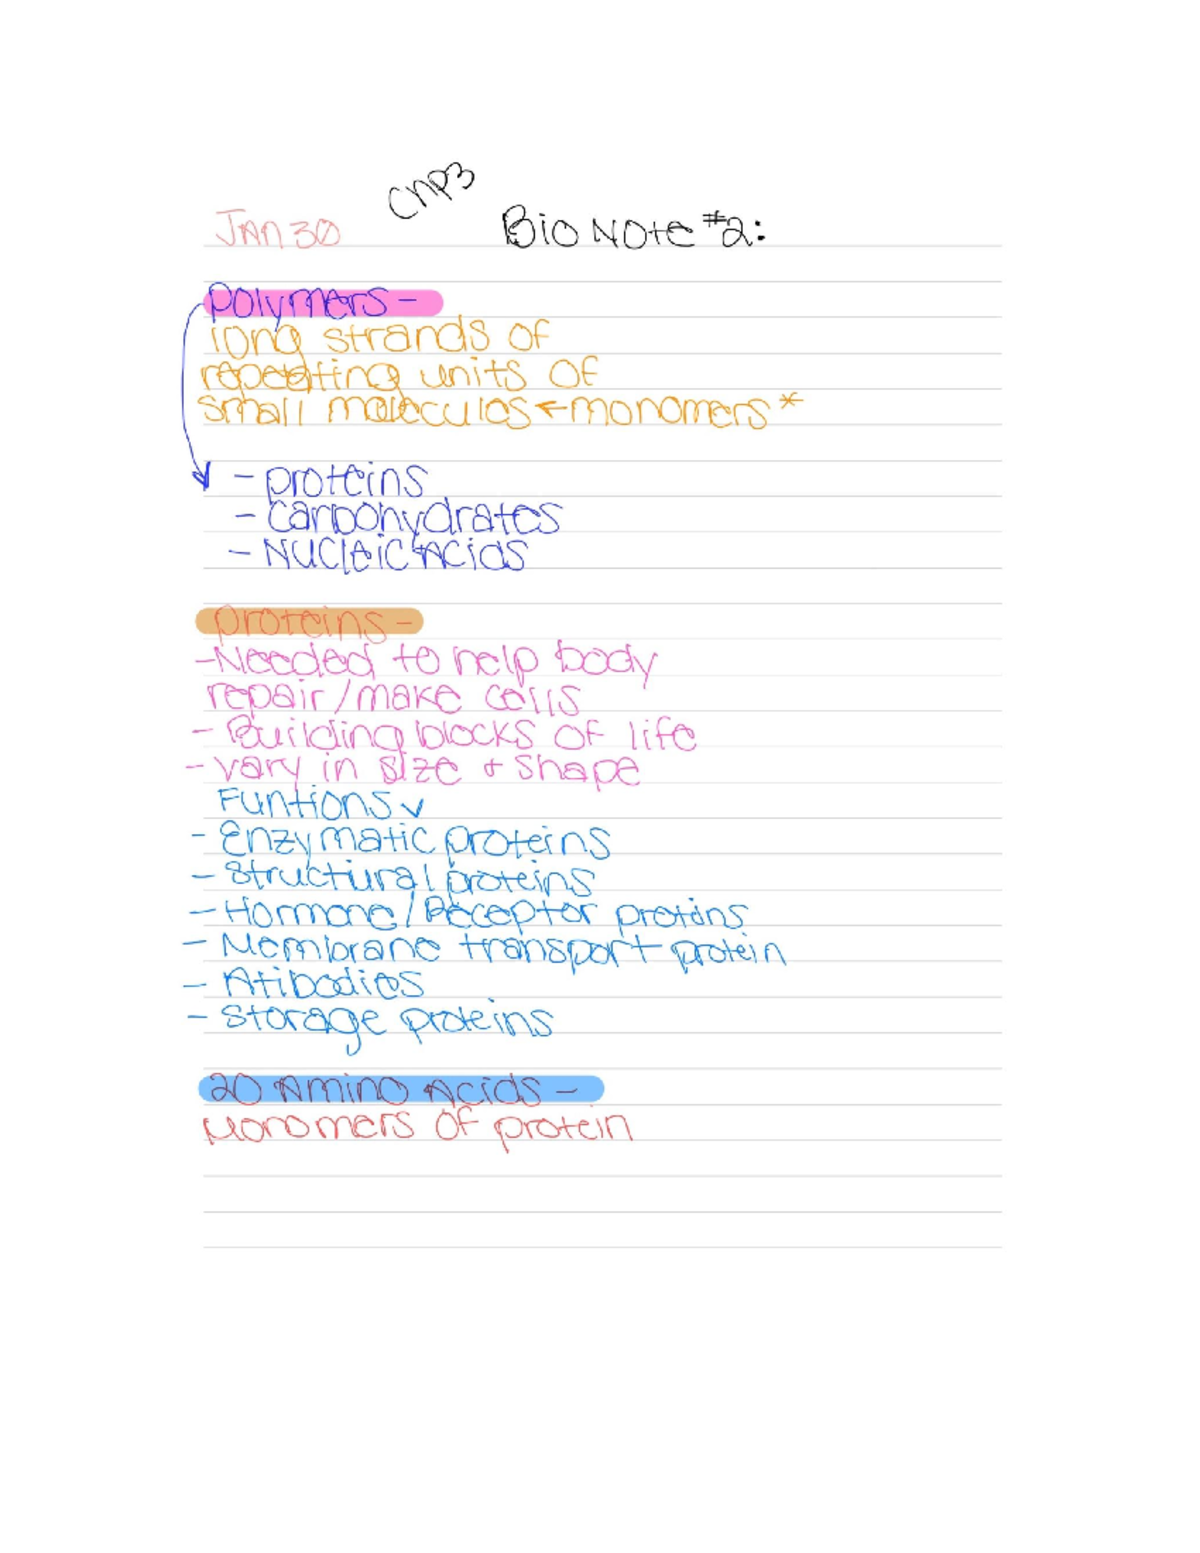 Chp3
JAN 30
Bio Note #2:
polymers -
long strands of
repeating units of
small molecules ← monomers *
- proteins
- Carbohydrates
- Nucleic Acids
proteins -
- Needed to help body
repair/make cells
- Building blocks of life
- vary in size + shape
Funtions ✓
- Enzymatic proteins
- Structural proteins
- Hormone/Receptor protins
- Membrane transport protein
- Atibodies
- Storage proteins
20 Amino Acids -
Monomers of protein